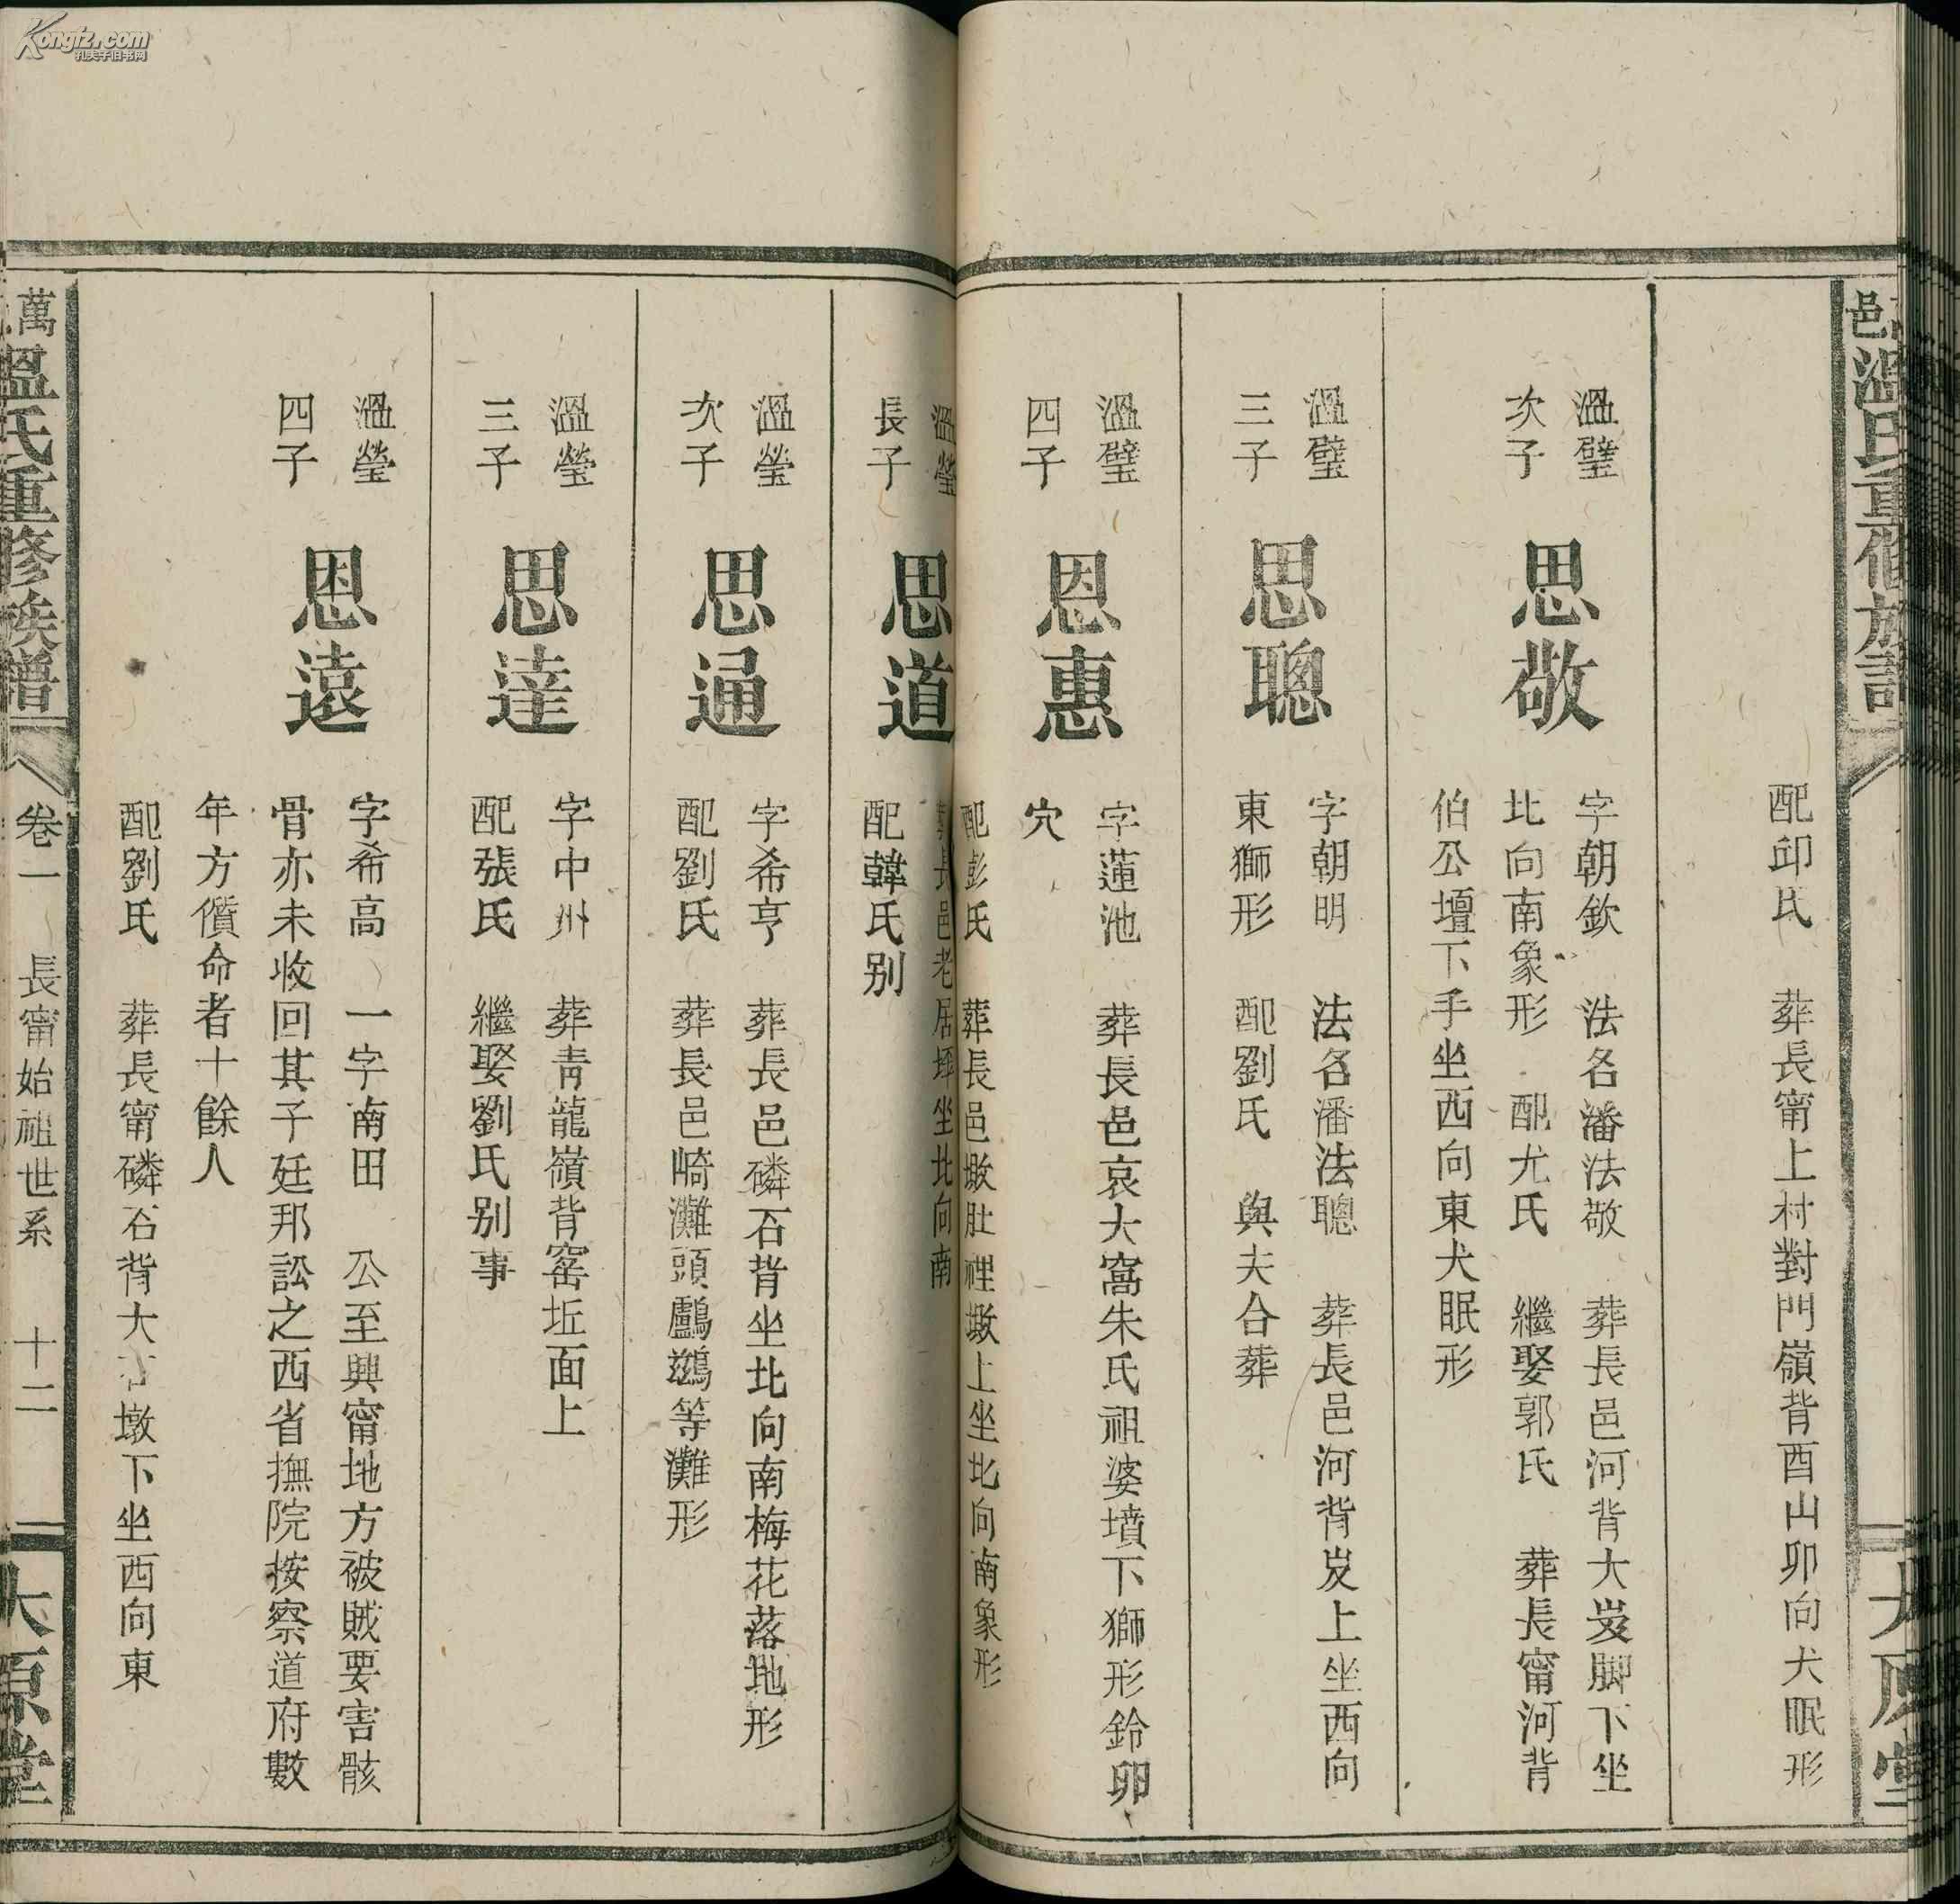 配邱氏　葬長甯上村對門嶺背酉山卯向犬眠形
溫璧
次子
思敬
字朝欽　法名潘法敬　葬長邑河背大岌脚下坐
北向南象形　配尤氏　繼娶郭氏　葬長甯河背
伯公壇下手坐西向東犬眠形
溫璧
三子
思聰
字朝明　法名潘法聰　葬長邑河背岌上坐西向
東獅形　配劉氏　與夫合葬
溫璧
四子
思惠
字蓮池　葬長邑哀大窩朱氏祖婆墳下獅形鈴卯
穴
配彭氏　葬長邑墩肚裡墩上坐北向南象形
溫瑩
長子
思道
葬長邑老居坪坐北向南
配韓氏別
溫瑩
次子
思通
字希亨　葬長邑磷石背坐北向南梅花落地形
配劉氏　葬長邑崎灘頭鸕鷀等灘形
溫瑩
三子
思達
字中州　葬靑龍嶺背窰坵面上
配張氏　繼娶劉氏別事
溫瑩
四子
思遠
字希高　一字南田　公至興甯地方被賊要害骸
骨亦未收回其子廷邦訟之西省撫院按察道府數
年方償命者十餘人
配劉氏　葬長甯磷石背大墩下坐西向東
萬
溫氏重修族譜
卷一　長甯始祖世系　十二
太原堂
邑
溫氏重修族譜
太原堂
Kongfz.com
孔夫子旧书网